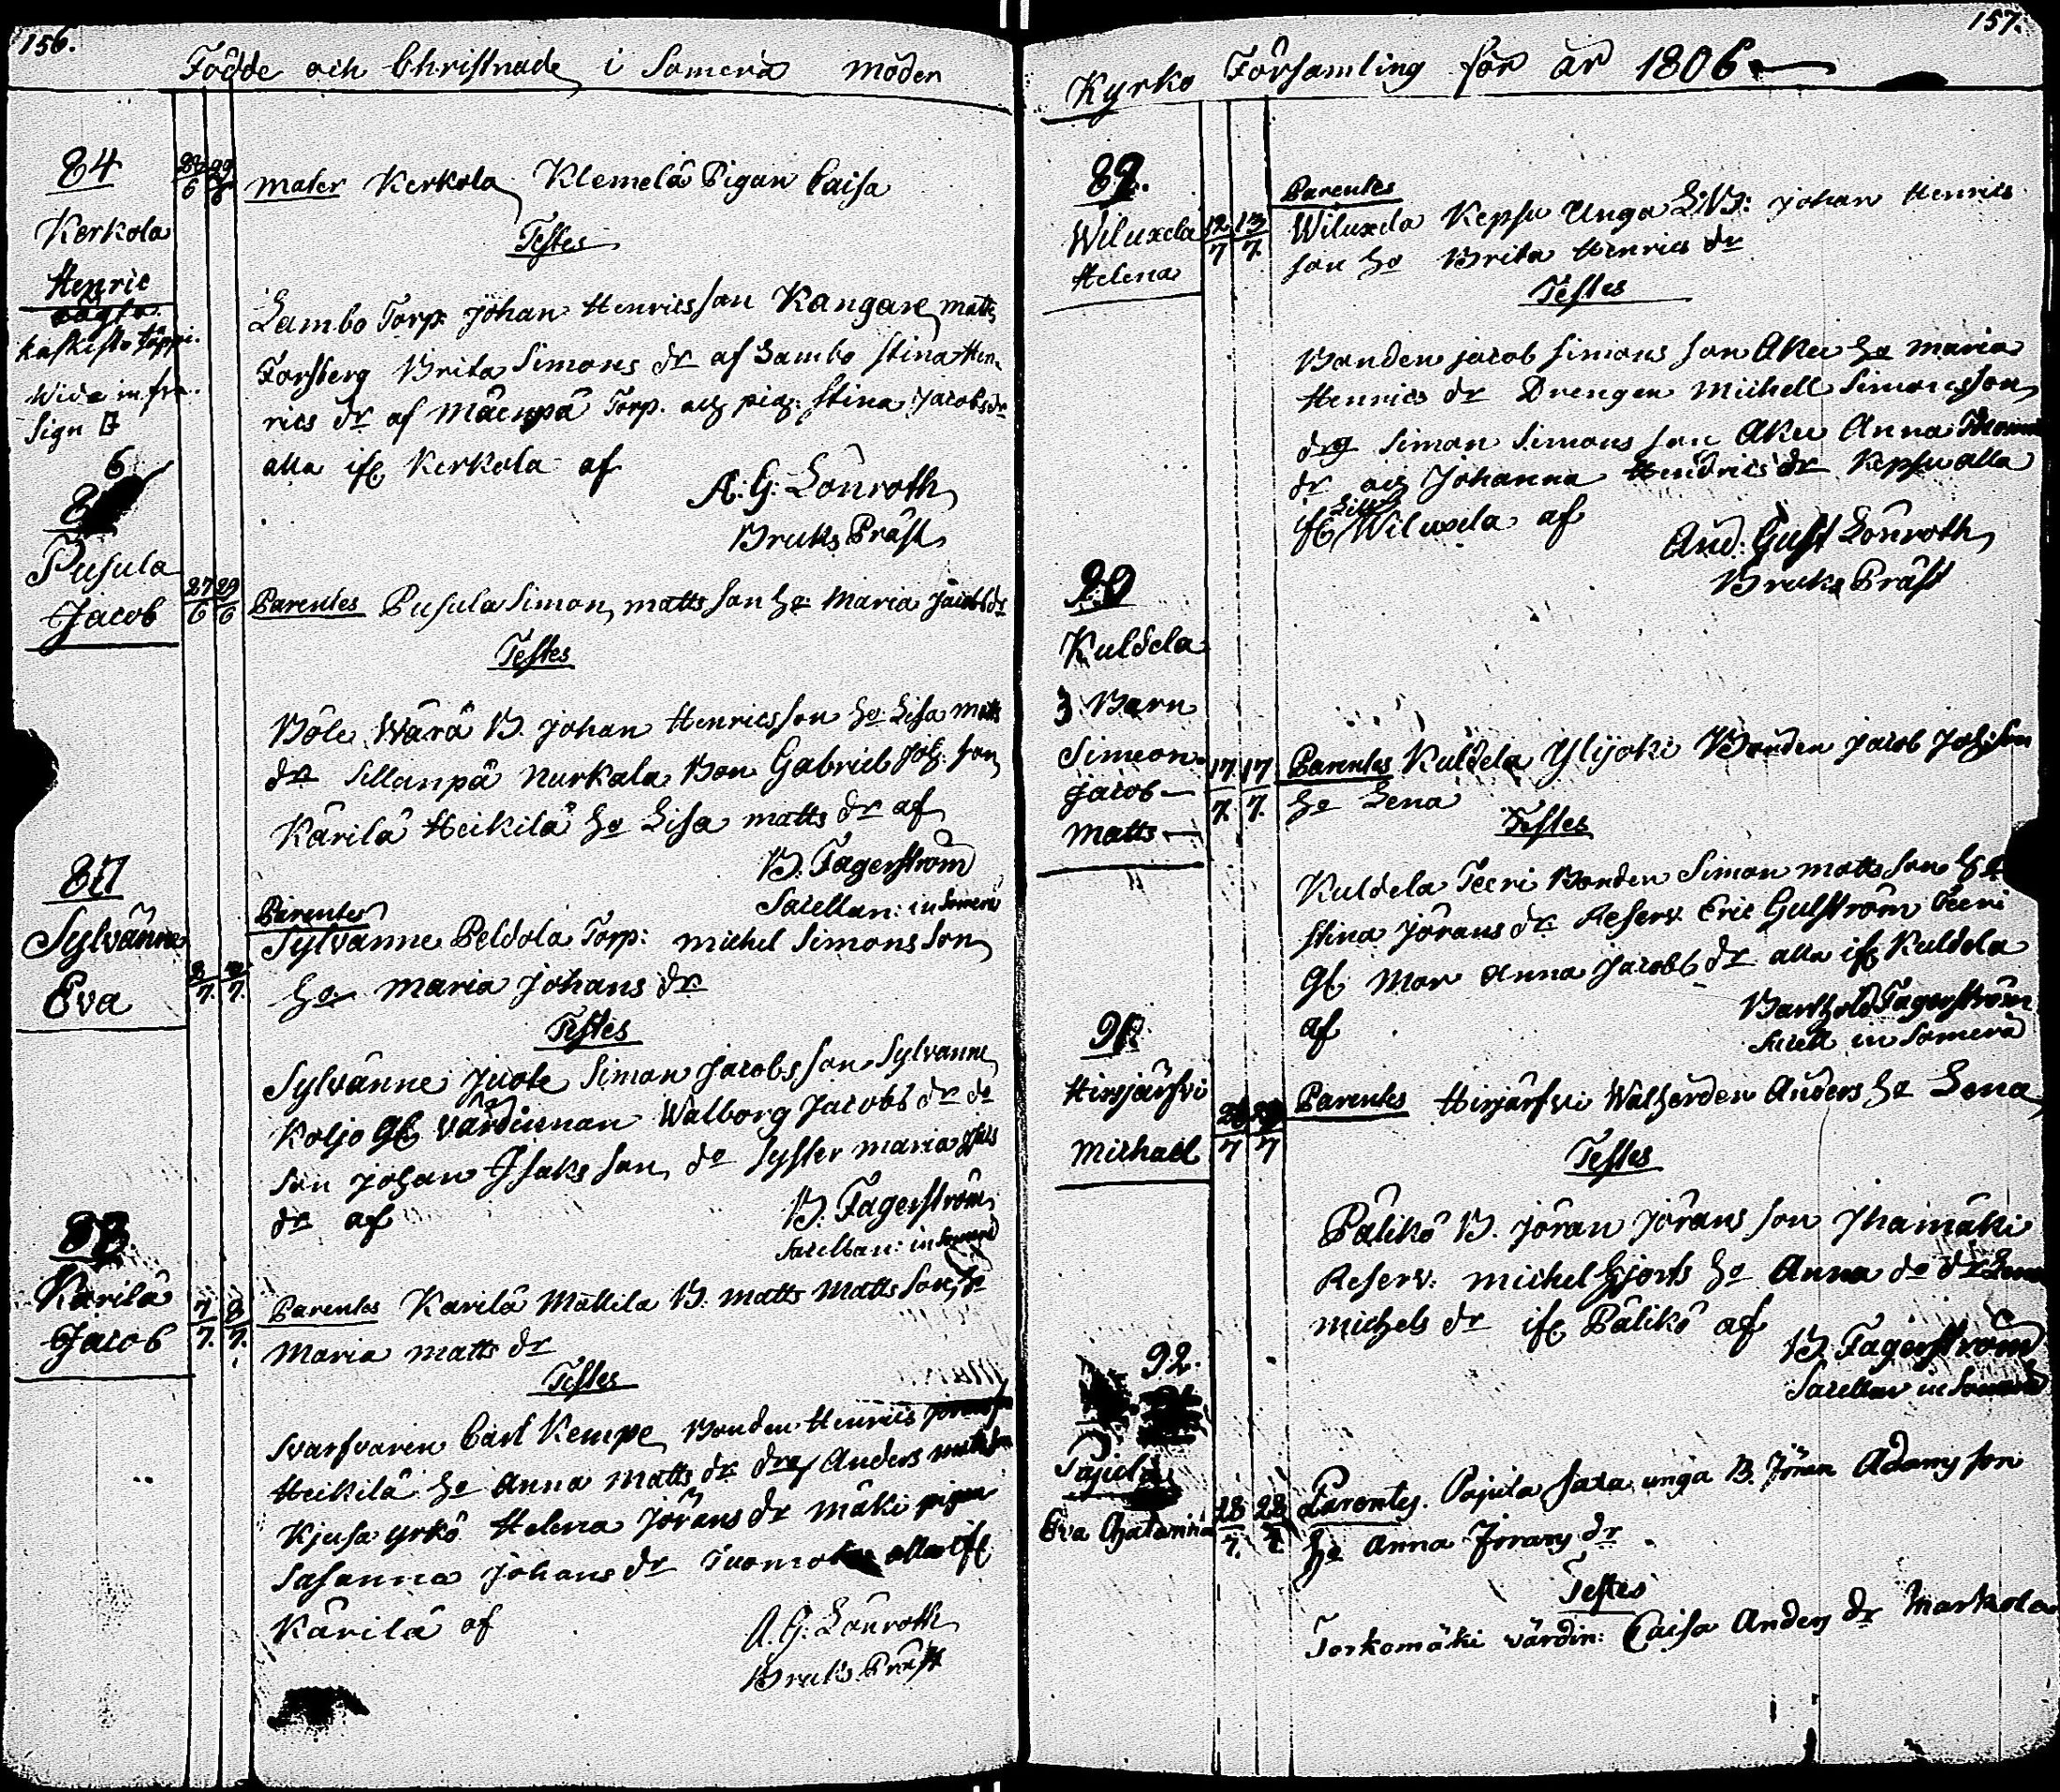 156.
Födde och Christnade i Somero moder
84
Kerkola
Henric
29
6
mater Kerkola Klemelä Pigan Caisa
Testes
Lambo Torp: Johan Henricsson Kangare, matts
Forsberg Brita Simons dr af Lambo Stina Hen-
rics dr af Mäenpä Torp. och pig: Stina Jacobs dr
alla ifr Kerkola af
A: G: Lönroth
Bruks Präst
Wide infra
Sign
6
8
Pusula
Jacob
27 29
6 6
Parentes Pusula Simon matts son ho Maria Jacobs dr
Testes
Böle Wärä B. Johan Henricsson ho Lisa matts
dr Sillanpä Nurkala Bon Gabriel Joh: son
Kärilä Heikilä ho Lisa matts dr af
B. Fagerström
Sacellan: in Somero
87
Sylvänne
Eva
7. 7.
Parentes
Sylvänne Peldola Torp: Michel Simons son
ho Maria Johans dr
Testes
Sylvänne Juote Simon Jacobs son Sylvänne
Koljo Gl värdinnan Walborg Jacobs dr do
son Johan Isaks son, do syster maria
dr af
B: Fagerström
Sacellan: in Somero
88
Karilä
Jacob
7 8
7. 7.
Parentes Karilä Mattila B. Matts Matts son, ho
Maria matts dr
Testes
Svarfvaren Carl Kempe, Bonden Henrics
Heikilä ho Anna Matts dr drg Anders matts son
Kjusa yrkö Helena Jörans dr mäki pigan
Susanna Johans dr alla ifr
Kärilä af
A. G. Lönroth
Bruks Präst
157.
Kyrko Församling för år 1806
89.
Wiluxela
Helena
12 13
7 7.
Parentes
Wiluxela Keppu Unga B: Johan Henrics
son ho Brita Henrics dr
Testes
Bonden Jacob Simons son Aku ho Maria
Henrics dr Drengen Michell Simonsson
drg Simon Simons son Aku Anna
dr och Johanna Hendrics dr Keppu alla
ifr Wiluxela af
And: Gust Lönroth
Bruks Präst
90
Kuldela
3 Barn
Simeon
Jacob
Matts
17 17
7. 7.
Parentes Kuldela Ylijoki Bonden Jacob Joh: son
ho Lena
Testes
Kuldela Teeri Bonden Simon matts son ho
Stina Jörans dr Reserv. Eric Gulström Teeri
Gl Mor Anna Jacobs dr alla ifr Kuldela
af
Barthold Fagerström
Sacell in Somero
91.
Hirsjärfvi
Michael
7 7
Parentes Hirsjärfvi Walherden Anders ho Lena
Testes
Pälikö B. Jöran Jörans son Ihamäki
Reserv. Michel Hjort ho Anna do dr Lena
michels dr ifr Pälikö af
B. Fagerström
Sacellan in Somero
92.
Pajula
Eva Chatarina
28 28
7. 7.
Parentes. Pajula Sara unga B. Jöran Adams son
ho Anna Jörans dr
Testes
Torkomäki värdin: Caisa Anders dr Markola